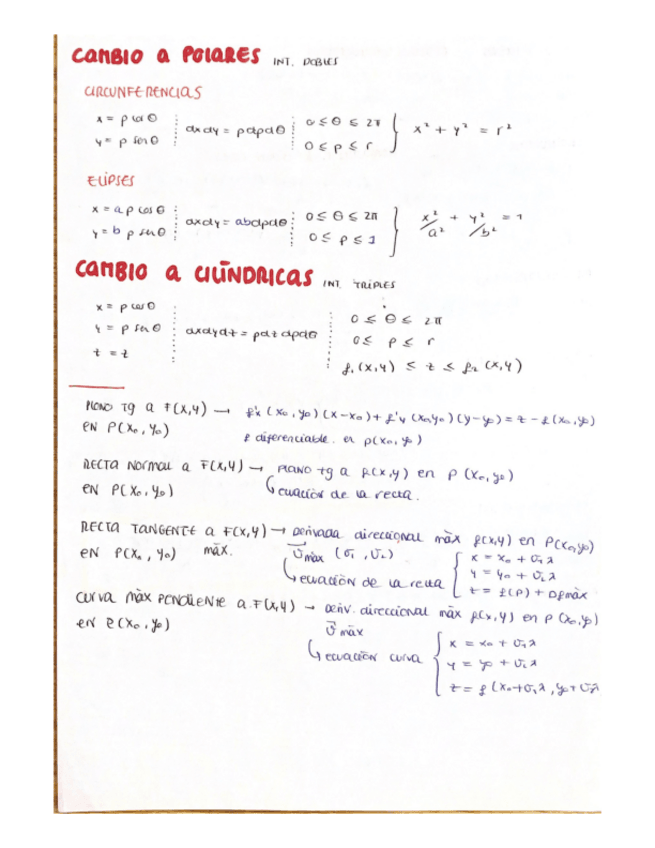 CAMBIO A POLARES INT. DOBLES
CIRCUNFERENCIAS
x = ρ cos θ
y = ρ sen θ
dxdy = ρdρdθ
0 ≤ θ ≤ 2π
0 ≤ ρ ≤ r
x² + y² = r²
ELIPSES
x = a ρ cos θ
y = b ρ sen θ
dxdy = abρdρdθ
0 ≤ θ ≤ 2π
0 ≤ ρ ≤ 1
x²/a² + y²/b² = 1
CAMBIO A CILÍNDRICAS INT. TRIPLES
x = ρ cos θ
y = ρ sen θ
z = z
dxdydz = ρdzdρdθ
0 ≤ θ ≤ 2π
0 ≤ ρ ≤ r
f₁(x,y) ≤ z ≤ f₂(x,y)
PLANO Tg A F(X,Y) → f'x (x₀, y₀) (x-x₀) + f'y (x₀,y₀) (y-y₀) = z - f(x₀, y₀)
EN P(X₀, Y₀) f diferenciable en p(x₀, y₀)
RECTA NORMAL A F(X,Y) → PLANO tg a f(x,y) en P (x₀, y₀)
EN P(X₀, Y₀) ↳ ecuación de la recta.
RECTA TANGENTE A F(X,Y) → Derivada direccional máx f(x,y) en P(x₀,y₀)
EN P(X₀, Y₀) MÁX. v⃗máx (v₁, v₂)
↳ ecuación de la recta
x = x₀ + v₁λ
y = y₀ + v₂λ
z = f(P) + Dfmáx
CURVA MÁX PENDIENTE A F(X,Y) → deriv. direccional máx f(x,y) en P (x₀,y₀)
en P(x₀, y₀) v⃗ máx
↳ ecuación curva
x = x₀ + v₁λ
y = y₀ + v₂λ
z = f (x₀+v₁λ, y₀+v₂λ